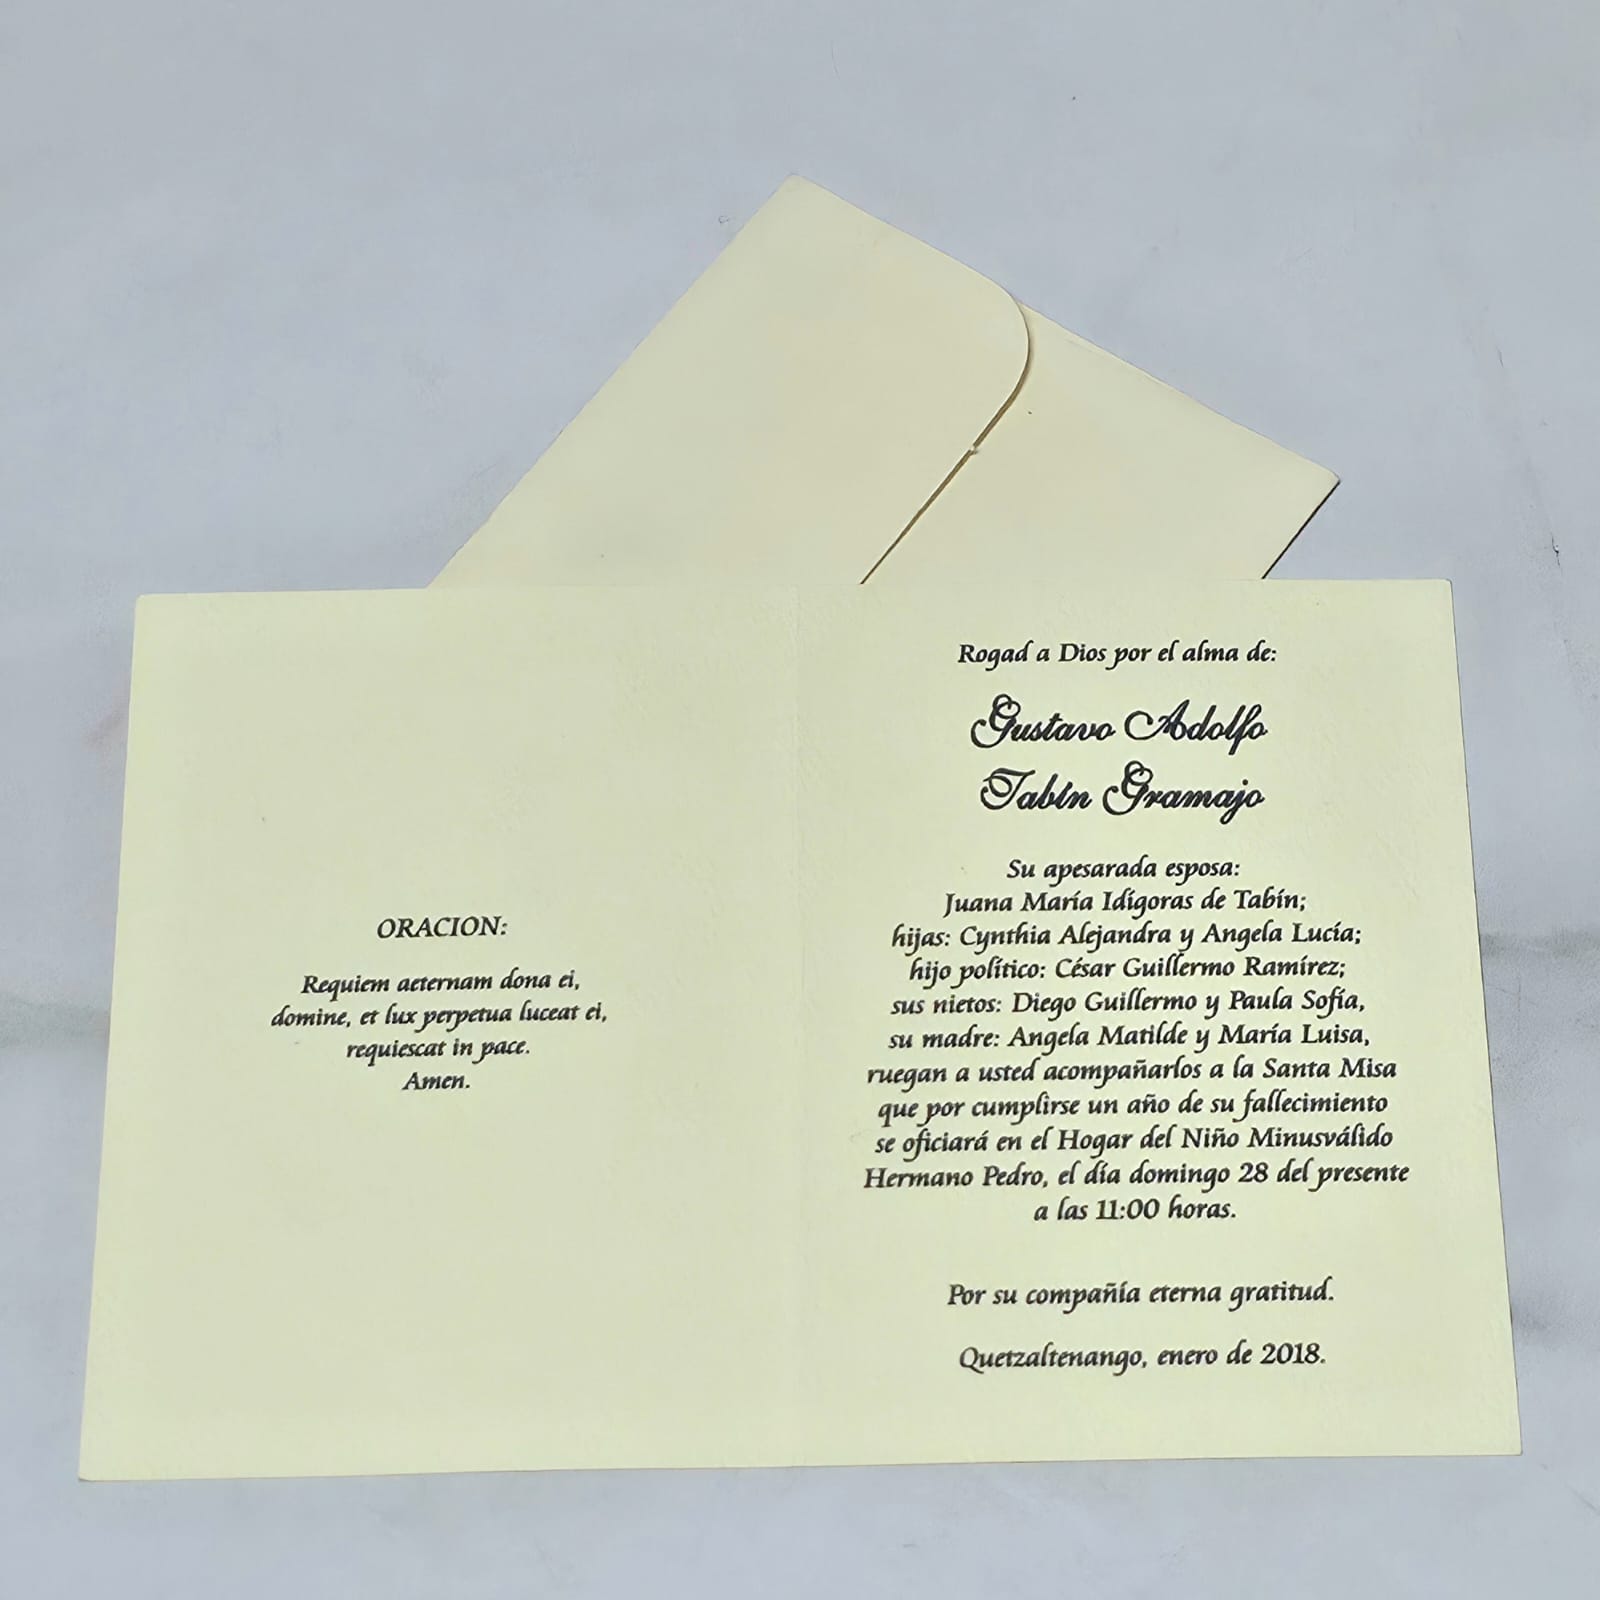 ORACION:
Requiem aeternam dona ei,
domine, et lux perpetua luceat ei,
requiescat in pace.
Amen.
Rogad a Dios por el alma de:
Gustavo Adolfo
Tabín Gramajo
Su apesarada esposa:
Juana María Idígoras de Tabín;
hijas: Cynthia Alejandra y Angela Lucía;
hijo político: César Guillermo Ramírez;
sus nietos: Diego Guillermo y Paula Sofía,
su madre: Angela Matilde y María Luisa,
ruegan a usted acompañarlos a la Santa Misa
que por cumplirse un año de su fallecimiento
se oficiará en el Hogar del Niño Minusválido
Hermano Pedro, el día domingo 28 del presente
a las 11:00 horas.
Por su compañía eterna gratitud.
Quetzaltenango, enero de 2018.